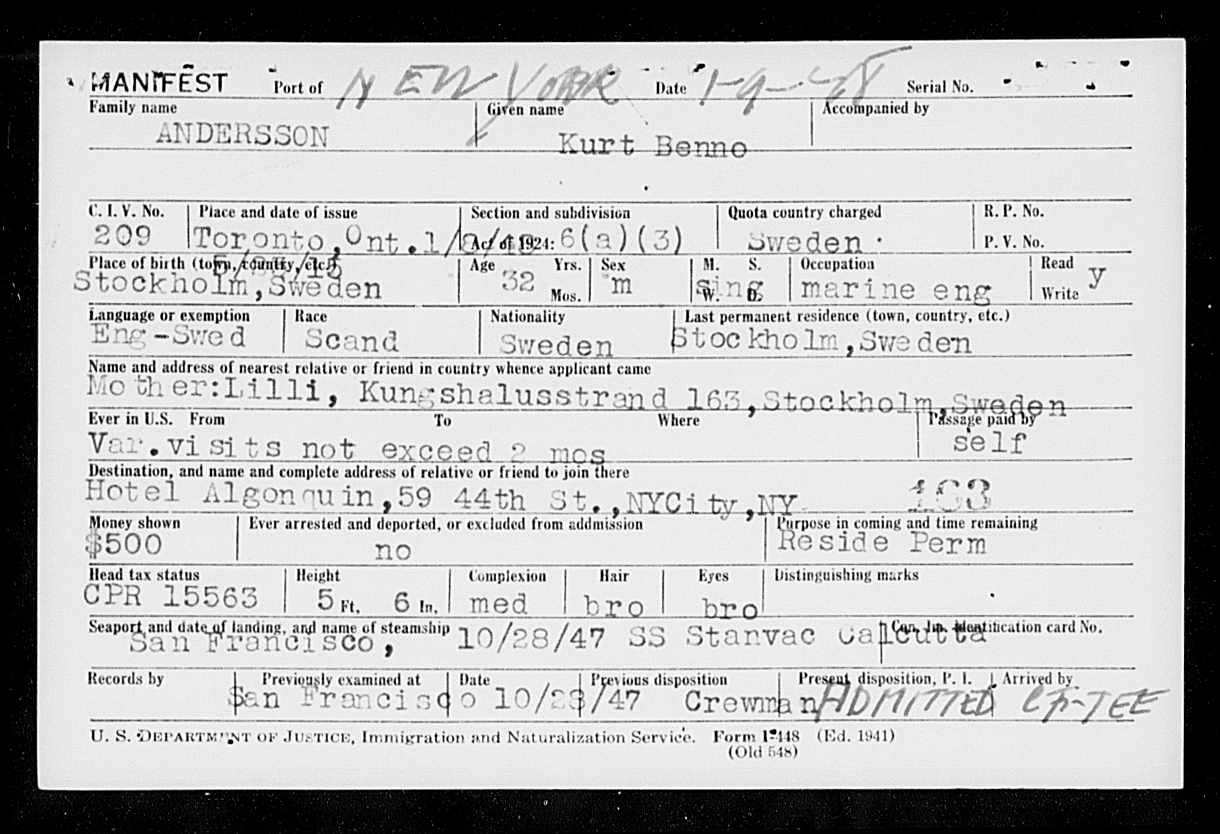 MANIFEST Port of NEW YORK Date 1-9-48 Serial No.
Family name Given name Accompanied by
ANDERSSON Kurt Benno
C. I. V. No. Place and date of issue Section and subdivision Quota country charged R. P. No.
209 Toronto,Ont.1/8/48 Act of 1924: 6(a)(3) Sweden P. V. No.
Place of birth (town, country, etc.) Age Yrs. Sex M. S. Occupation Read
Stockholm,Sweden 32 Mos. m sing W. D. marine eng Write y
Language or exemption Race Nationality Last permanent residence (town, country, etc.)
Eng-Swed Scand Sweden Stockholm,Sweden
Name and address of nearest relative or friend in country whence applicant came
Mother:Lilli, Kungshalusstrand 163,Stockholm,Sweden
Ever in U.S. From To Where Passage paid by
Var.visits not exceed 2 mos self
Destination, and name and complete address of relative or friend to join there
Hotel Algonquin,59 44th St.,NYCity,NY 163
Money shown Ever arrested and deported, or excluded from addmission Purpose in coming and time remaining
$500 no Reside Perm
Head tax status Height Complexion Hair Eyes Distinguishing marks
CPR 15563 5 Ft. 6 In. med bro bro
Seaport and date of landing, and name of steamship Identification card No.
San Francisco, 10/28/47 SS Stanvac Calcutta
Records by Previously examined at Date Previous disposition Present disposition, P. I. Arrived by
San Francisco 10/28/47 Crewman ADMITTED
U. S. DEPARTMENT OF JUSTICE, Immigration and Naturalization Service. Form I-448 (Ed. 1941)
(Old 548)